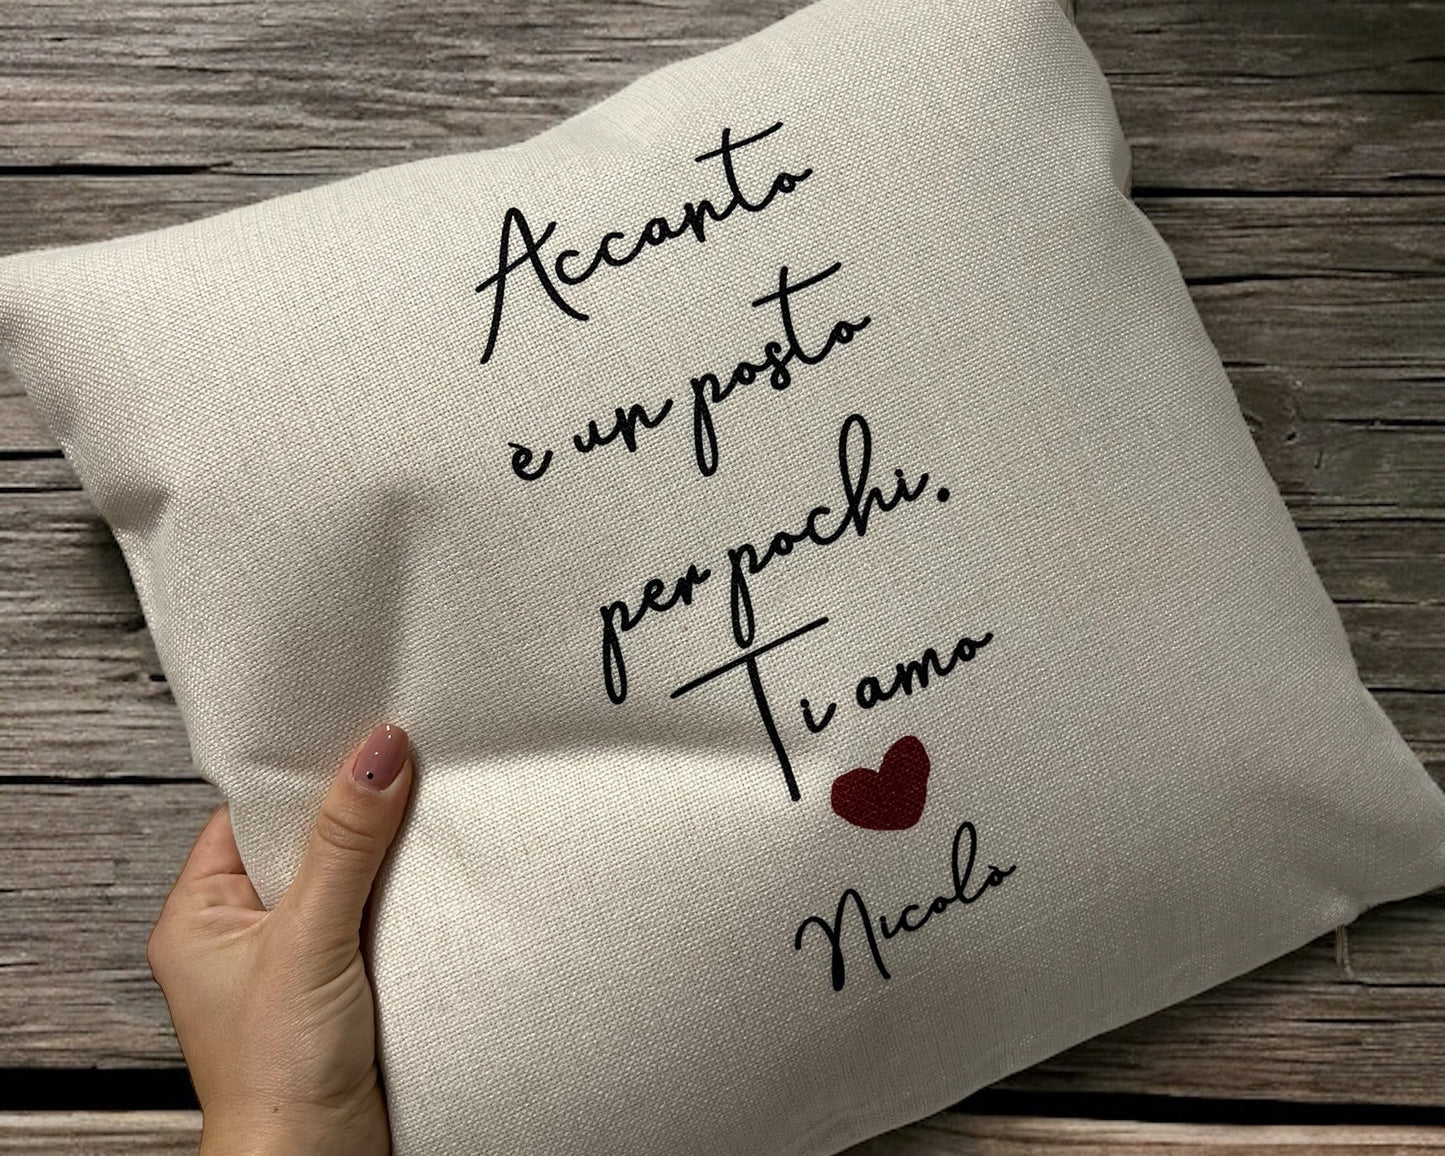 Accanto
è un posto
per pochi.
Ti amo
Nicolò